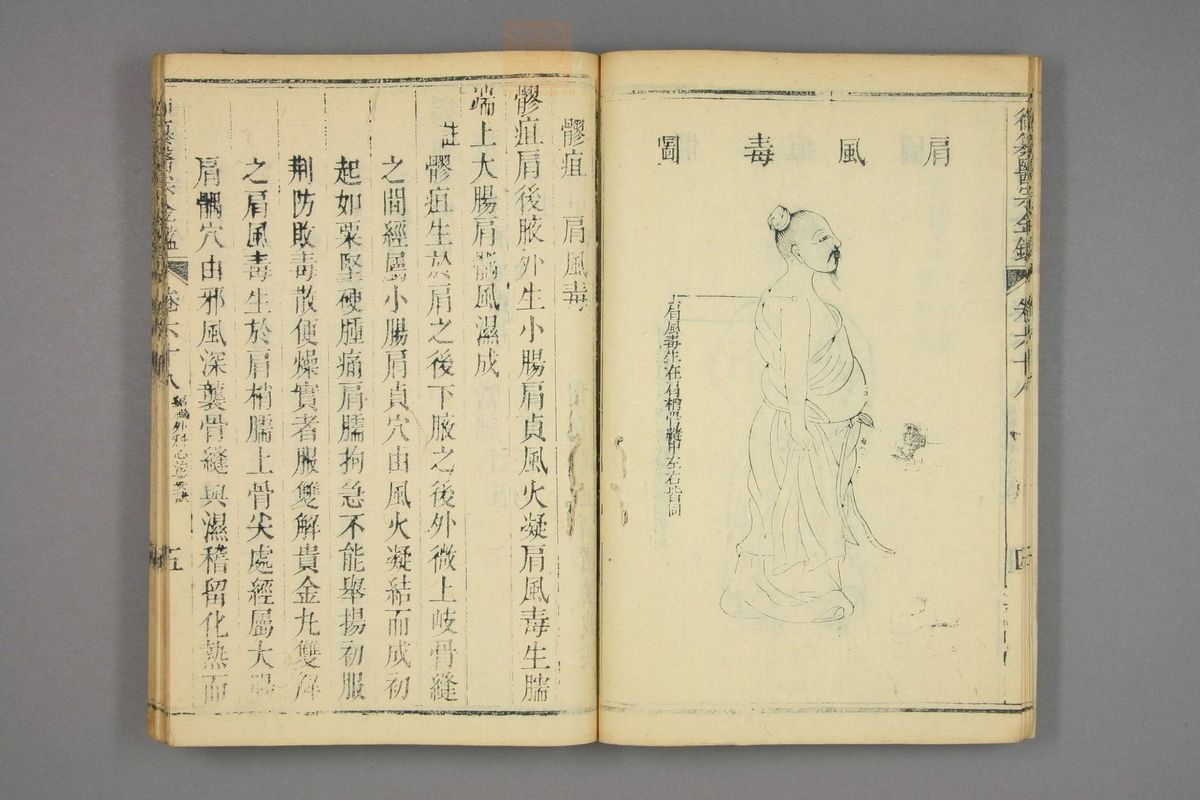 御纂醫宗金鑑
卷六十八
肩風毒圖
肩風毒生在肩梢骨縫中左右皆同
髎疽 肩風毒
髎疽肩後腋外生小腸肩貞風火凝肩風毒生臑
端上大腸肩髃風濕成
註
髎疽生於肩之後下腋之後外微上岐骨縫
之間經屬小腸肩貞穴由風火凝結而成初
起如粟堅硬腫痛肩臑拘急不能舉揚初服
荆防敗毒散便燥實者服雙解貴金丸雙解
之肩風毒生於肩梢臑上骨尖處經屬大腸
肩髃穴由邪風深襲骨縫與濕稽留化熱而
醫宗金鑑
卷六十八
編輯外科心法要訣
五